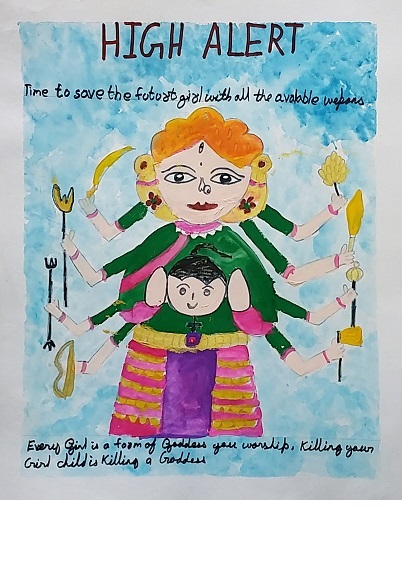 HIGH ALERT
Time to save the futust girl with all the avalable wepons
Every Girl is a foam of Goddess you worship, Killing your
Girl child is Killing a Goddess